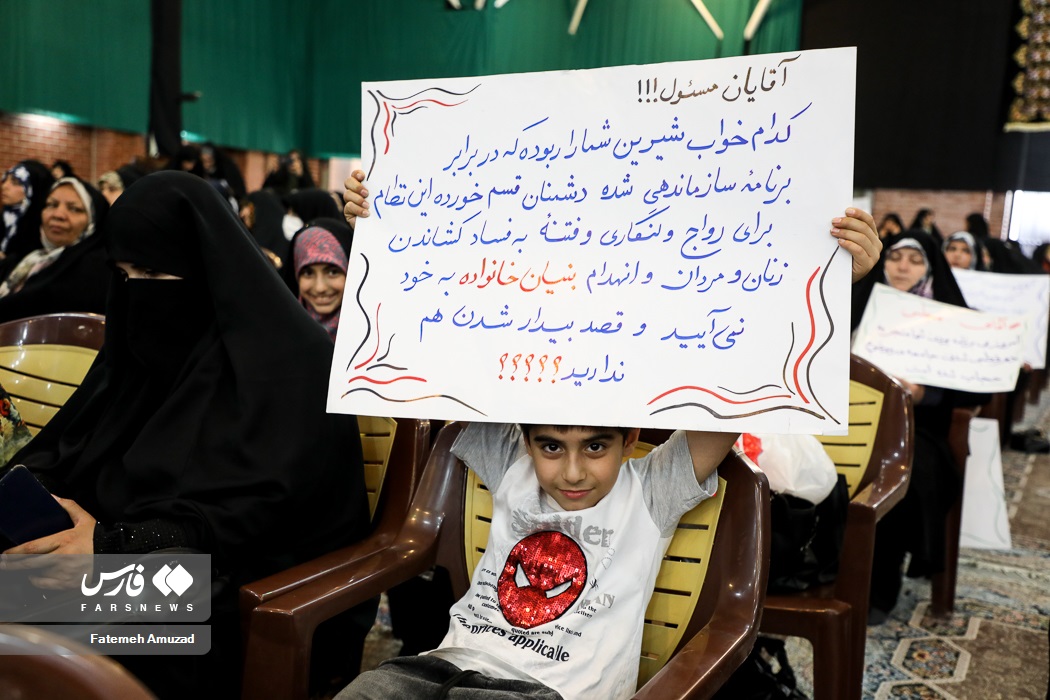 آقایان مسئول!!!
کدام خواب شیرین شما را ربوده که در برابر
برنامهٔ سازماندهی شده دشمنان قسم خورده این نظام
برای رواج ولنگاری و فتنهٔ به فساد کشاندن
زنان و مردان و انهدام بنیان خانواده به خود
نمی‌آیید و قصد بیدار شدن هم
ندارید؟؟؟؟؟
Spider
the prices applicable
فارس
FARSNEWS
Fatemeh Amuzad